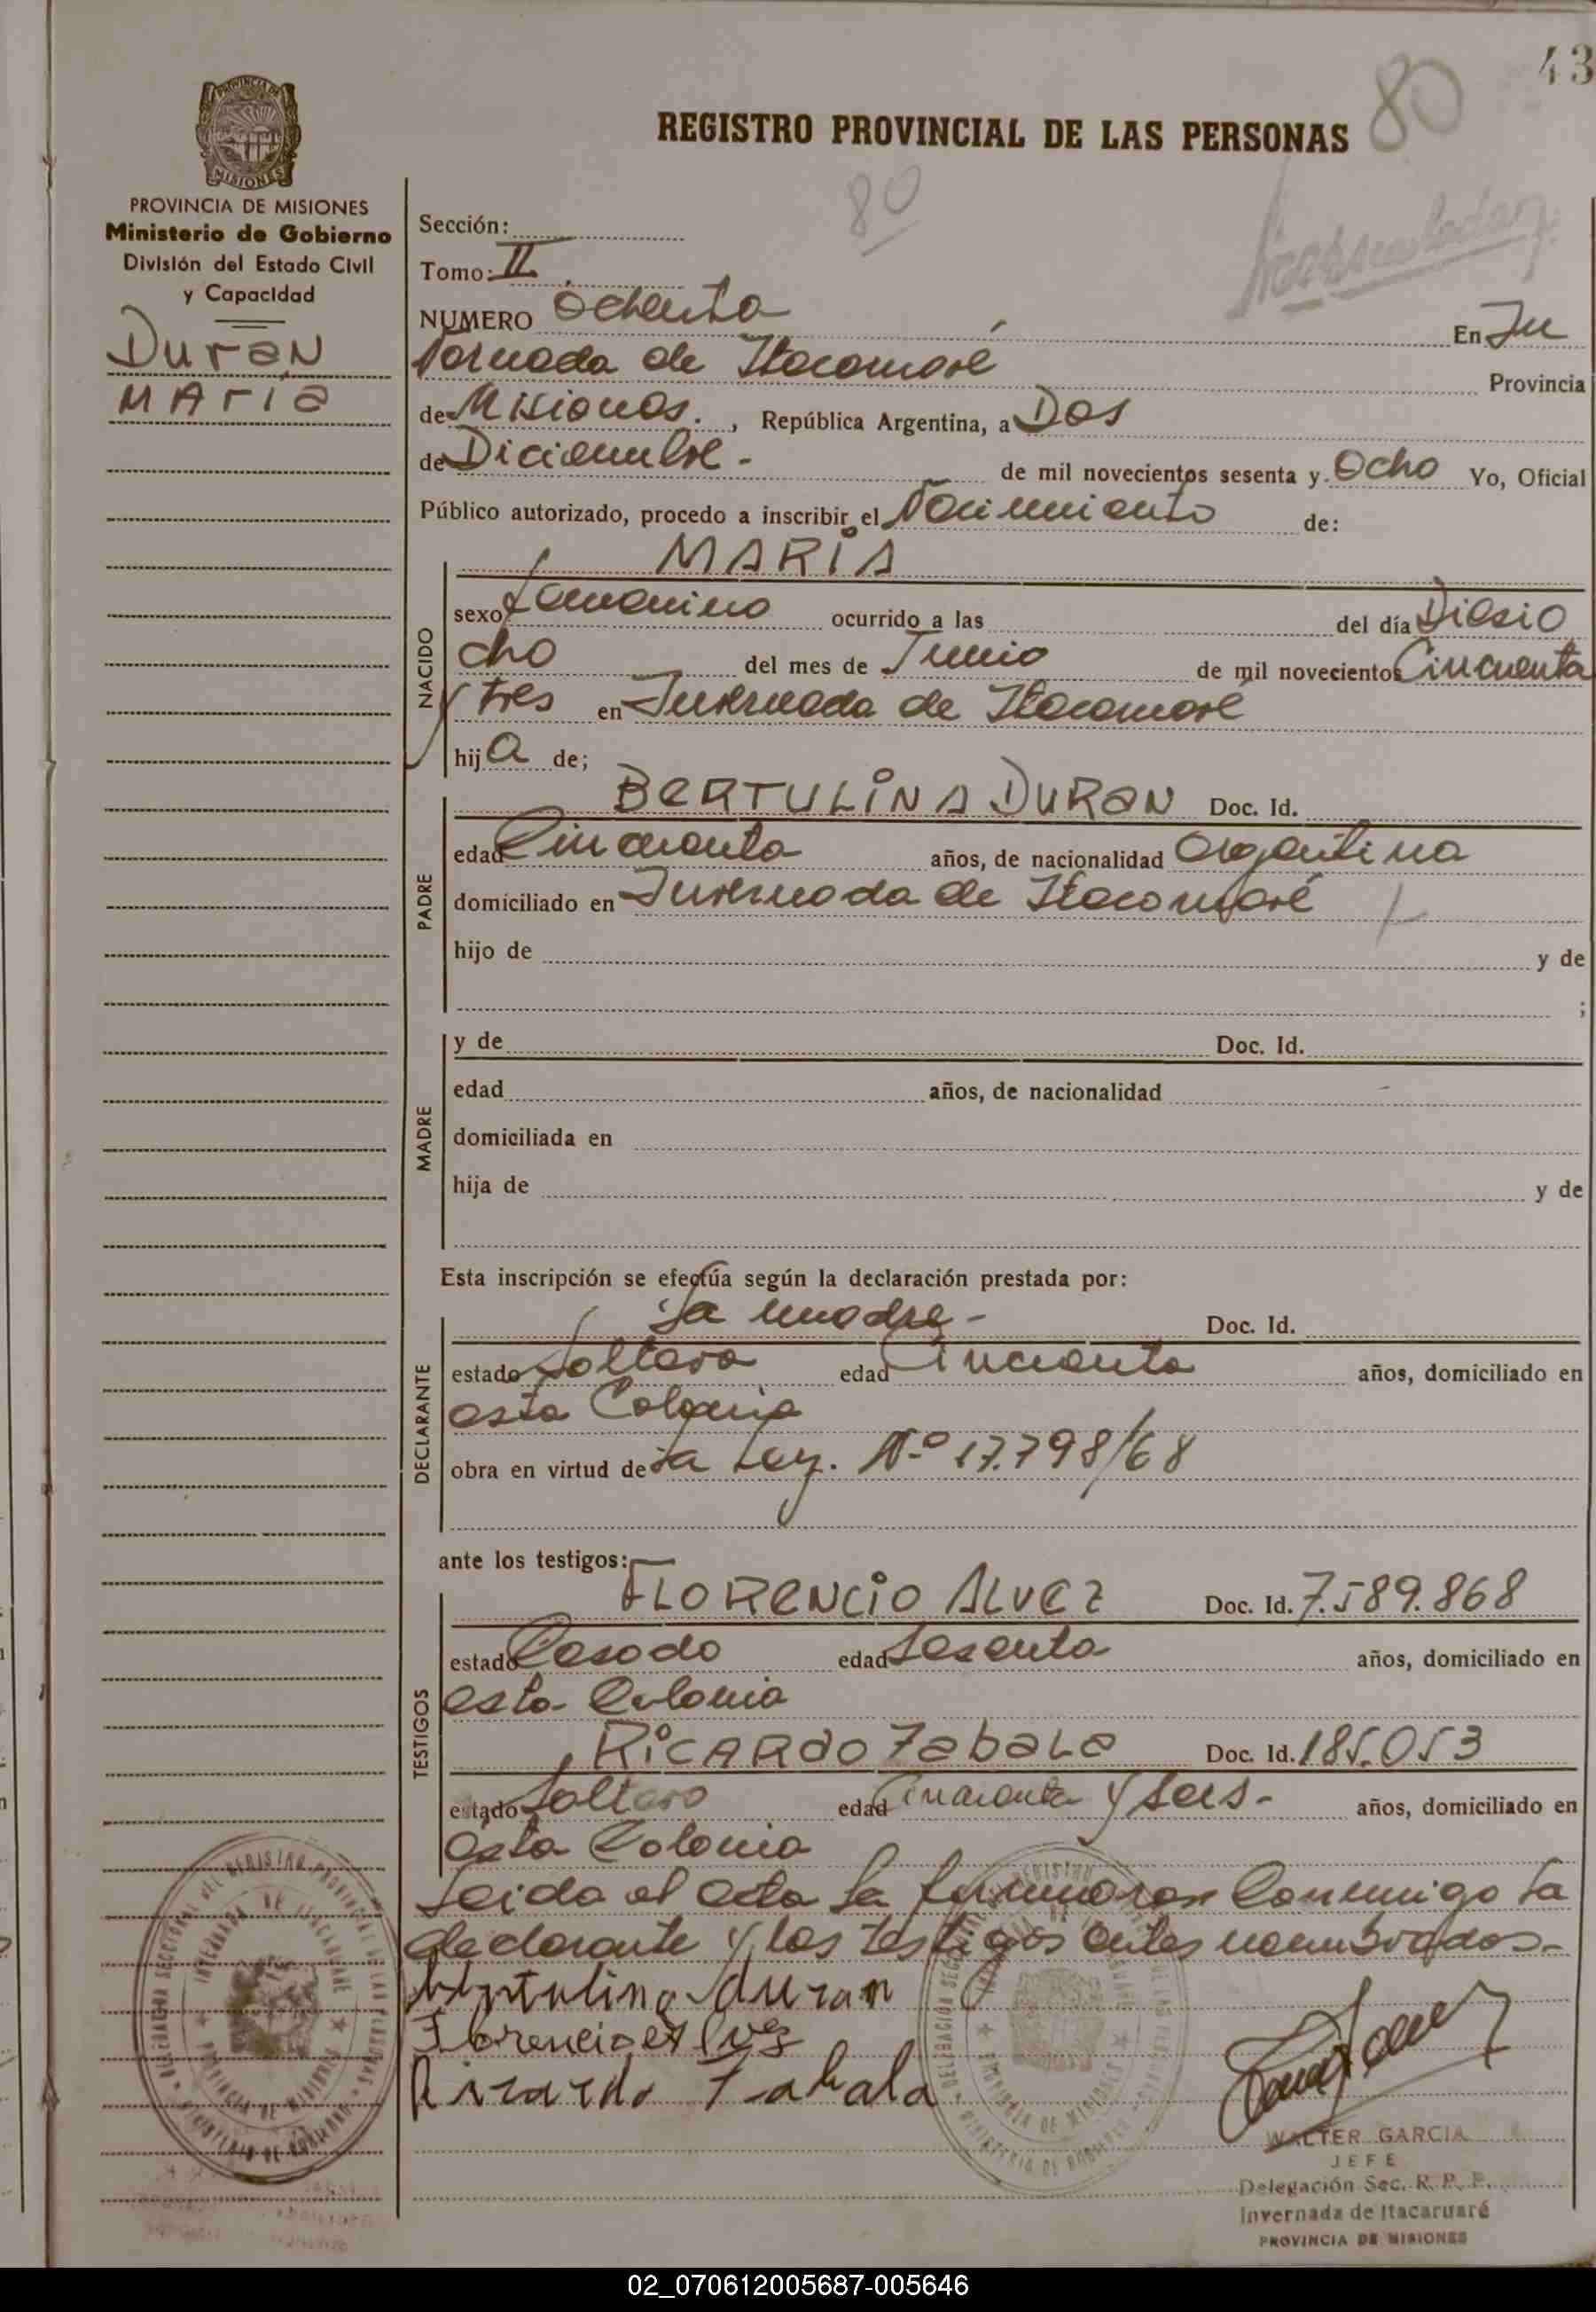 43
80
REGISTRO PROVINCIAL DE LAS PERSONAS
80
PROVINCIA DE MISIONES
Ministerio de Gobierno
División del Estado Civil
y Capacidad
Duran
Maria
Sección:
Tomo: II
NUMERO Ochenta En In
vernada de Itacaruaré Provincia
de Misiones. , República Argentina, a Dos
de Diciembre - de mil novecientos sesenta y Ocho Yo, Oficial
Público autorizado, procedo a inscribir el Nacimiento de:
NACIDO
MARIA
sexo femenino ocurrido a las del día Diesio
cho del mes de Junio de mil novecientos Cincuenta
y tres en Invernada de Itacaruaré
hij a de;
PADRE
BERTULINA DURAN Doc. Id.
edad Cincuenta años, de nacionalidad Argentina
domiciliado en Invernada de Itacaruaré
hijo de y de
;
MADRE
y de Doc. Id.
edad años, de nacionalidad
domiciliada en
hija de y de
Esta inscripción se efectúa según la declaración prestada por:
DECLARANTE
La madre - Doc. Id.
estado Soltera edad Cincuenta años, domiciliado en
esta Colonia
obra en virtud de La Ley. Nº 17.798/68
ante los testigos:
TESTIGOS
FLORENCIO ALVEZ Doc. Id. 7.589.868
estado Casado edad Sesenta años, domiciliado en
esta Colonia
RICARDO Zabala Doc. Id. 185.053
estado Soltero edad Cincuenta y seis - años, domiciliado en
esta Colonia
Leida el acta la firmaron Conmigo La
declarante y los testigos antes nombrados -
Bertulina duran
Florencio alvez
Ricardo Zabala
WALTER GARCIA
JEFE
Delegación Sec. R. P. P.
Invernada de Itacaruaré
PROVINCIA DE MISIONES
02_070612005687-005646